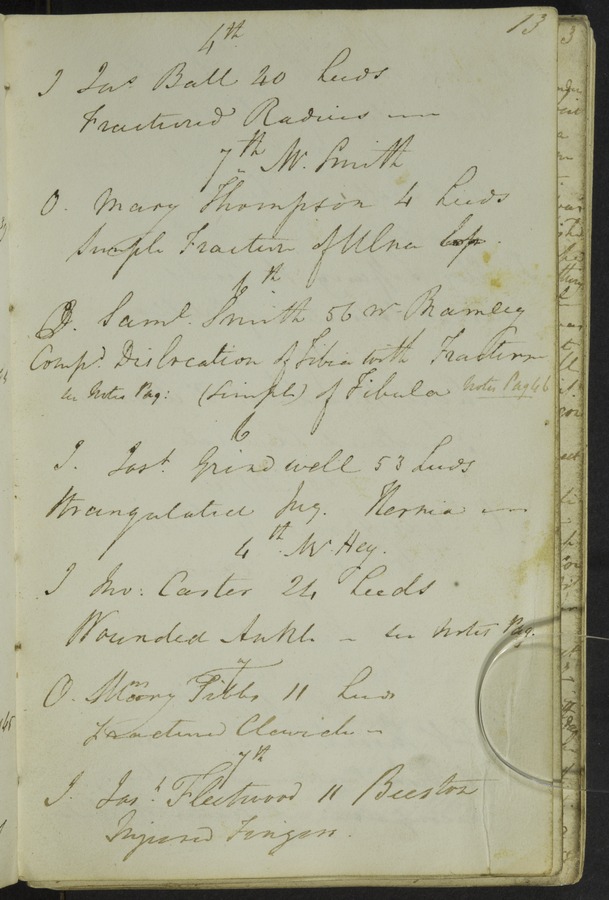 13
4th
I Jas Ball 20 Leeds
Fractured Radius
7th Mr. Smith
O. Mary Thompson 4 Leeds
Simple Fracture of Ulna
6th
Saml. Smith 56 Mr Bramley
Compd. Dislocation of Tibia with Fracture
see Notes Pag: (Simple) of Fibula Notes Pag 46
6
I. Josh. Grindwell 53 Leeds
Strangulated Ing. Hernia
4th Mr. Hey.
I Jno: Carter 24 Leeds
Wounded Ankle - see Notes Pag.
7
O. Mary Tibbs 11 Leeds
Fracture Clavicle
7th
I. Josh. Fleetwood 11 Beeston
Injured Fingers.